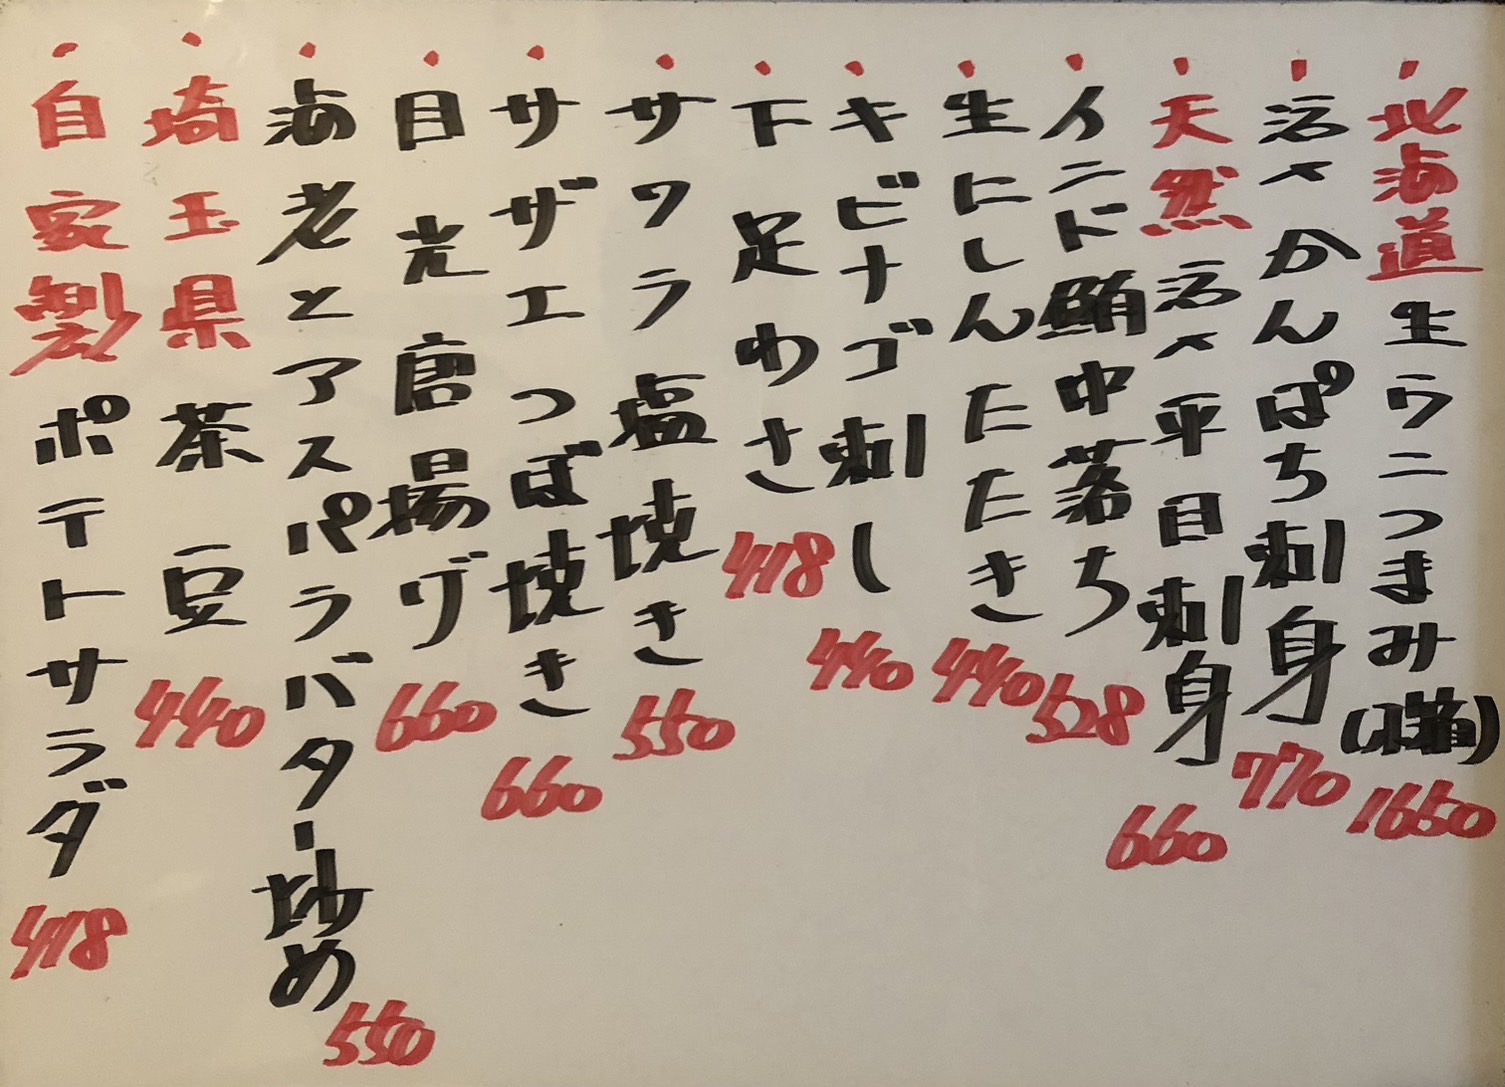 ・北海道生ウニつまみ(1箱)1650
・活〆かんぱち刺身770
・天然活〆平目刺身660
・インド鮪中落ち528
・生にしんたたき440
・キビナゴ刺し440
・下足わさ418
・サワラ塩焼き550
・サザエつぼ焼き660
・目光唐揚げ660
・海老とアスパラバター炒め550
・埼玉県茶豆440
・自家製ポテトサラダ418